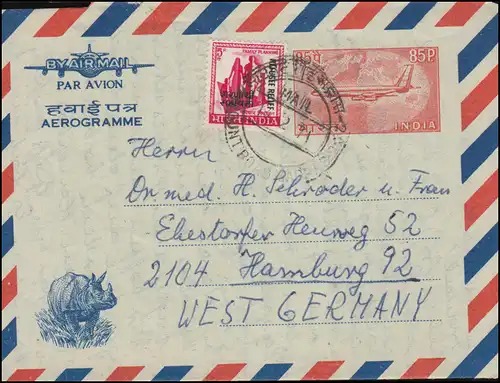 BY AIR MAIL
PAR AVION
हवाई पत्र
AEROGRAMME
FAMILY PLANNING
REFUGEE RELIEF
भारत INDIA
85 P
INDIA
Herrn
Dr. med. H. Schröder u. Frau
Ehestorfer Heuweg 52
2104 Hamburg 92
WEST GERMANY